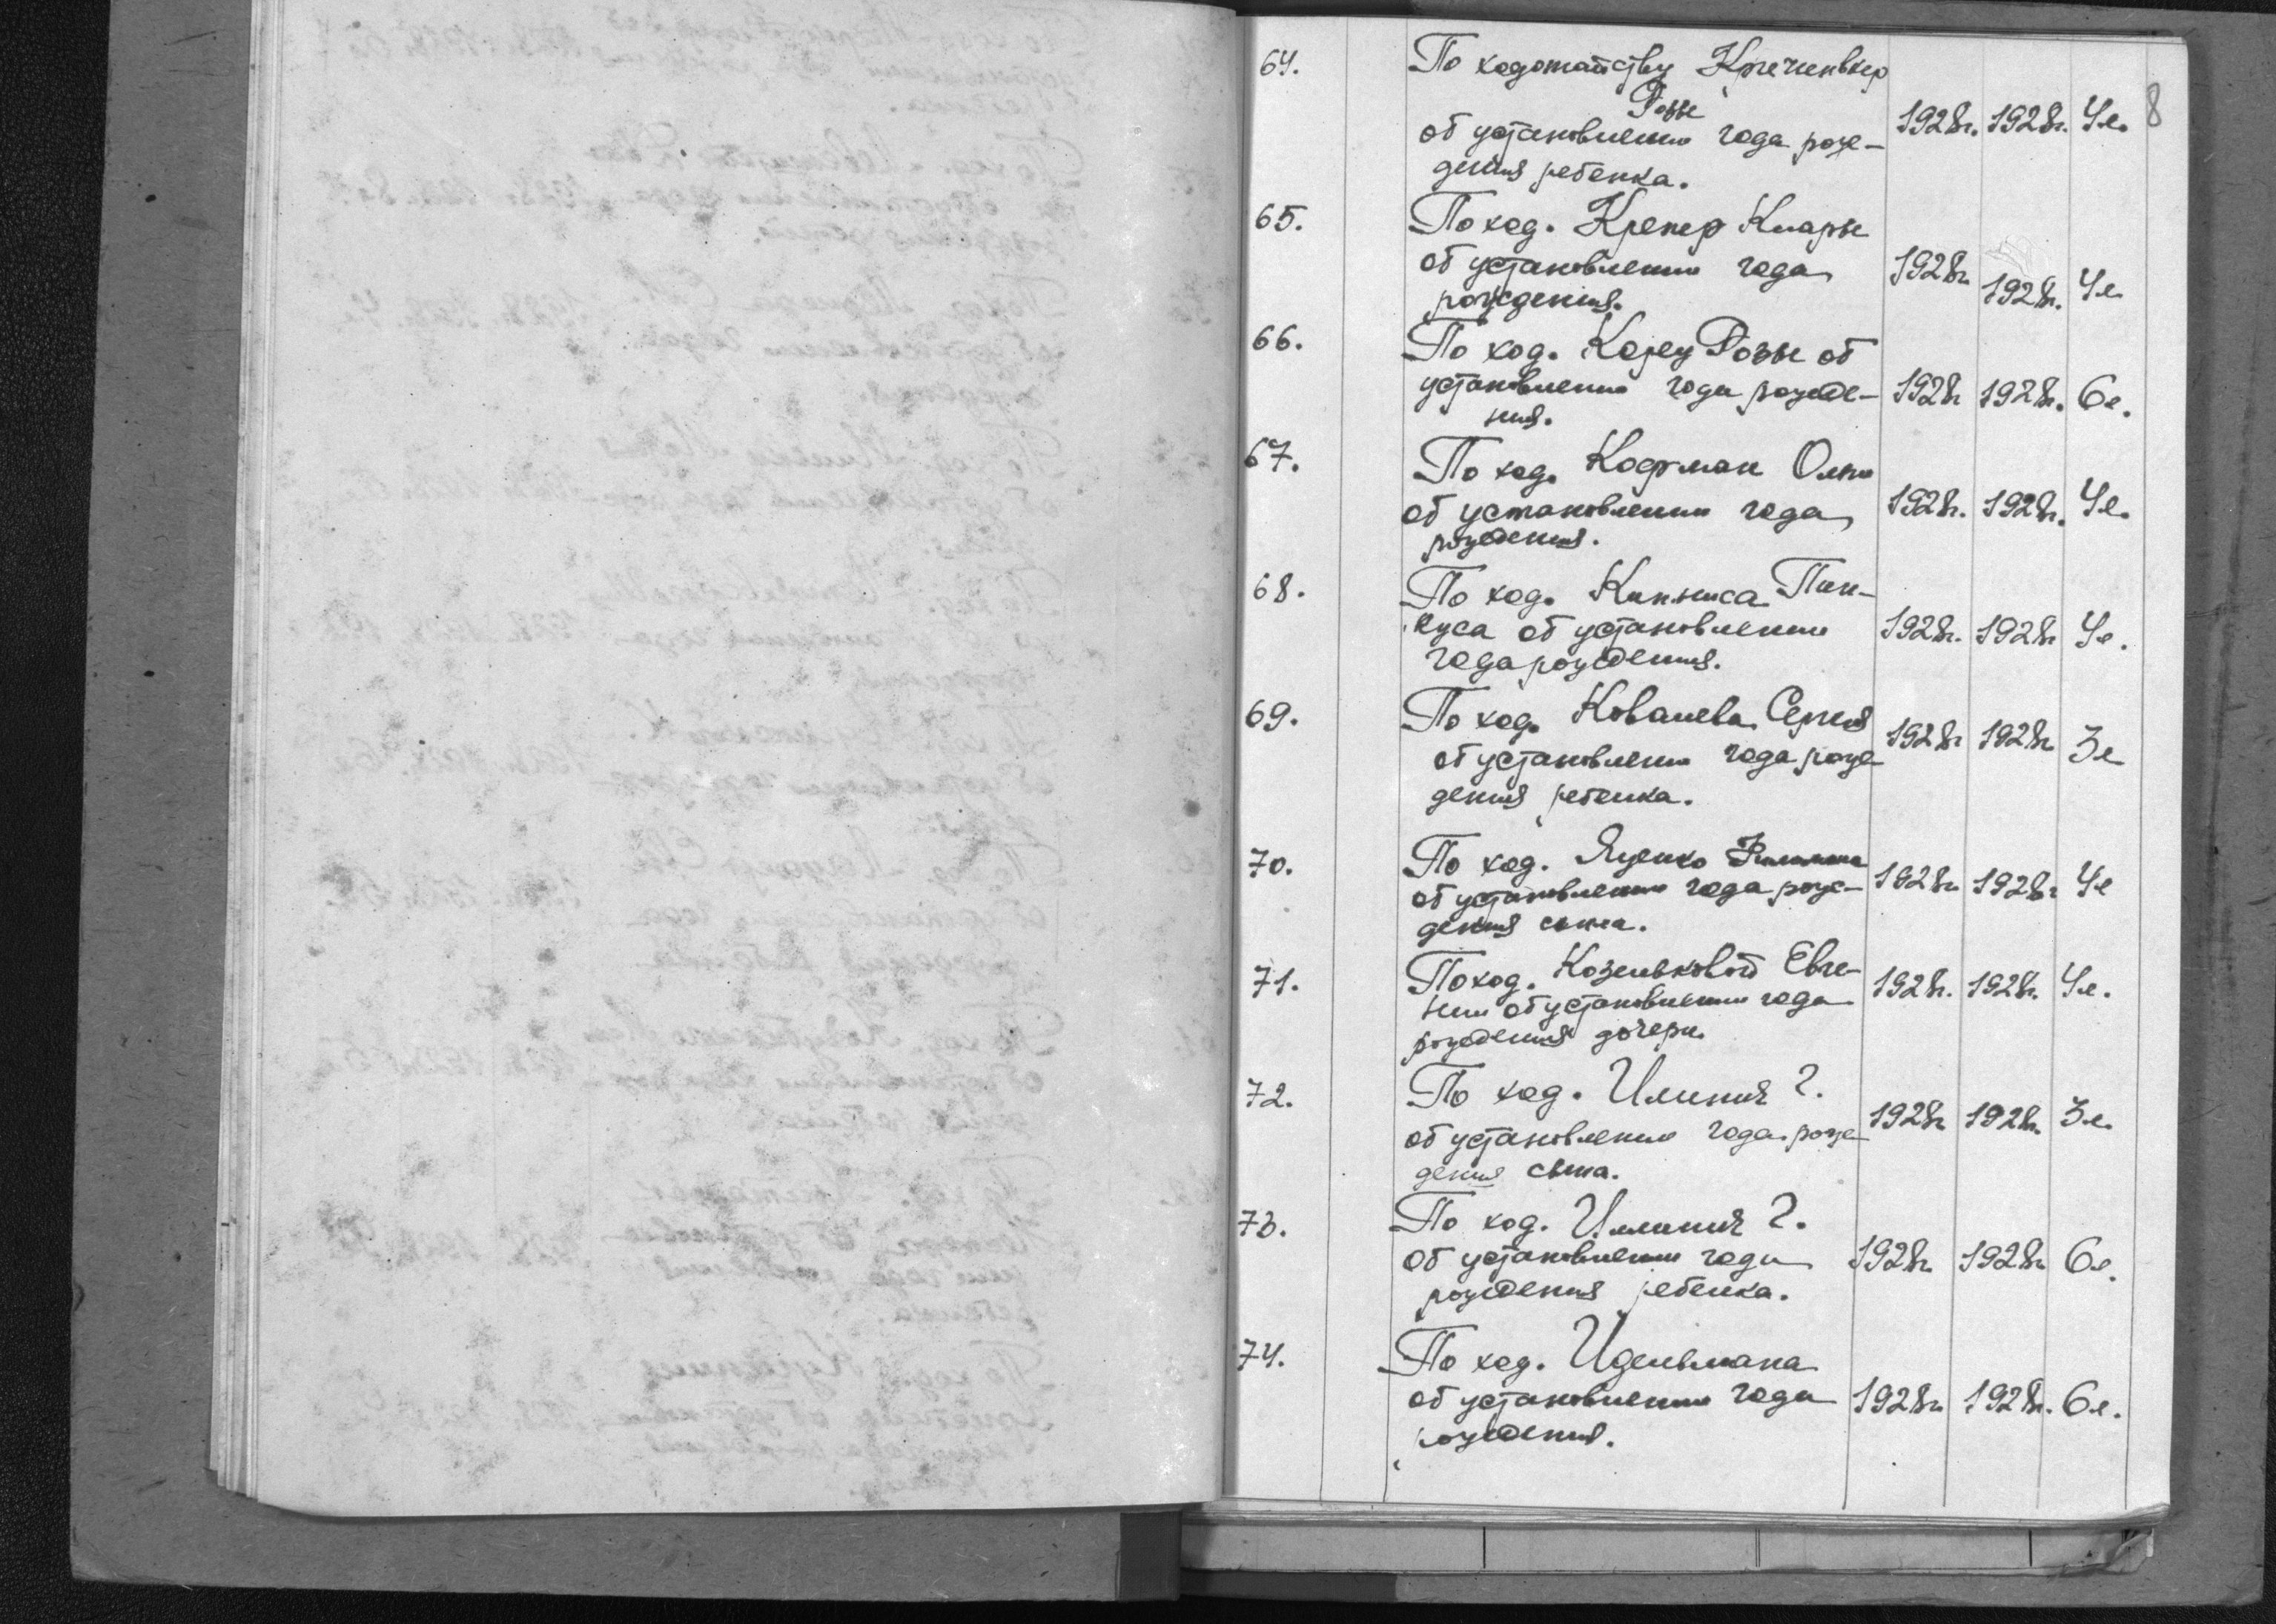 8
64. По ходотайству Кречинкер
Розы
об установлении года рож-
дения ребенка. 1928г. 1928г. 4л.
65. По ход. Крекер Клары
об установлении года
рождения. 1928г. 1928г. 4л
66. По ход. Розы об
установлении года рожде-
ния. 1928г 1928г. 6л.
67. По ход. Кофман Ольги
об установлении года
рождения. 1928г. 1928г. 4л.
68. По ход. Кипниса Пин-
куса об установлении
года рождения. 1928г. 1928г 4л.
69. По ход. Ковалева Сергея
об установлении года рож
дения ребенка. 1928г 1928г 3л
70. По ход. Яценко
об установлении года рож-
дения сына. 1928г. 1928г 4л
71. По ход. Козельковой Евге-
нии об установлении года
рождения дочери. 1928г. 1928г. 4л.
72. По ход. Илинич Г.
об установлении года рож
дения сына. 1928г 1928г. 3л.
73. По ход. Илинич Г.
об установлении года
рождения ребенка. 1928г. 1928г 6л.
74. По ход. Идельмана
об установлении года
рождения. 1928г. 1928г. 6л.